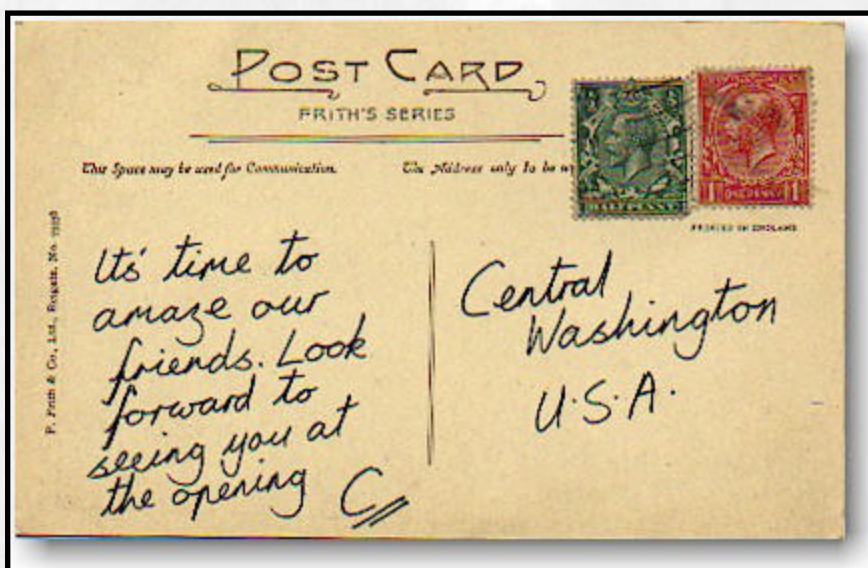 POST CARD
FRITH'S SERIES
This Space may be used for Communication.
The Address only to be
HALFPENNY
1 ONE PENNY 1
PRINTED IN ENGLAND
F. Frith & Co., Ltd., Reigate, No.
Its' time to
amaze our
friends. Look
forward to
seeing you at
the opening
C
Central
Washington
U.S.A.